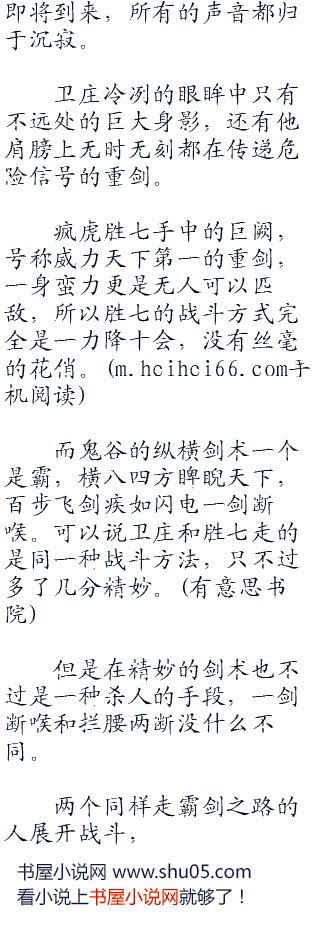 即将到来，所有的声音都归
于沉寂。
卫庄冷冽的眼眸中只有
不远处的巨大身影，还有他
肩膀上无时无刻都在传递危
险信号的重剑。
疯虎胜七手中的巨阙，
号称威力天下第一的重剑，
一身蛮力更是无人可以匹
敌，所以胜七的战斗方式完
全是一力降十会，没有丝毫
的花俏。(m.hcihci66.com手
机阅读)
而鬼谷的纵横剑术一个
是霸，横八四方睥睨天下，
百步飞剑疾如闪电一剑断
喉。可以说卫庄和胜七走的
是同一种战斗方法，只不过
多了几分精妙。(有意思书
院)
但是在精妙的剑术也不
过是一种杀人的手段，一剑
断喉和拦腰两断没什么不
同。
两个同样走霸剑之路的
人展开战斗，
书屋小说网 www.shu05.com
看小说上书屋小说网就够了！